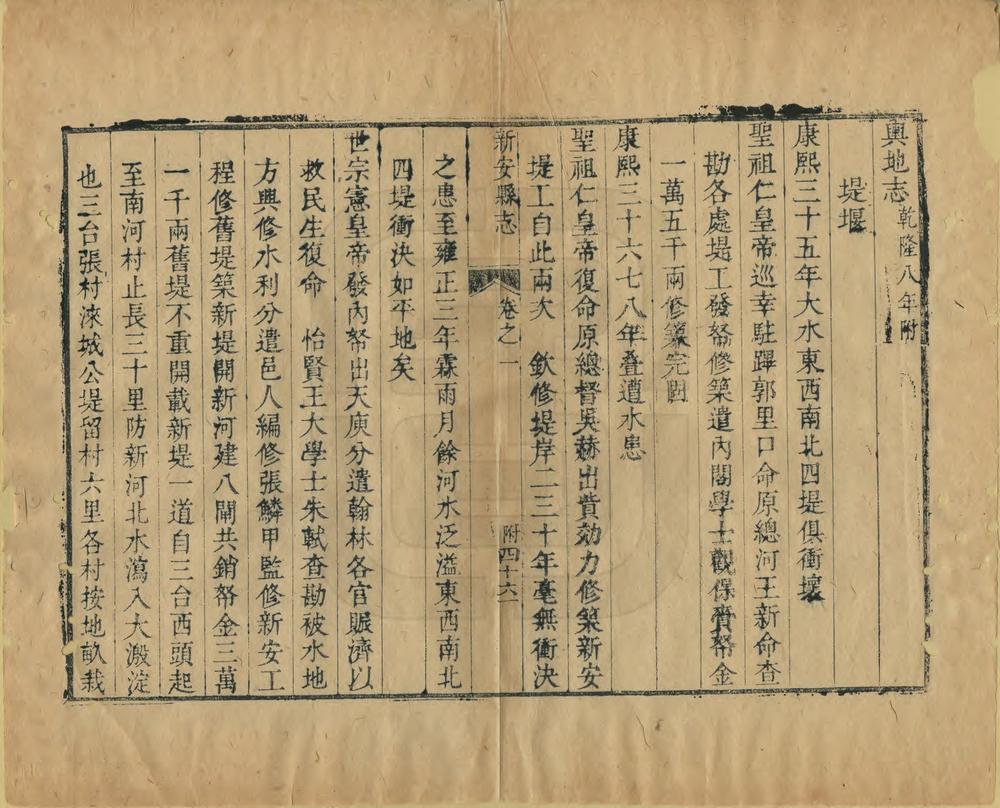 輿地志乾隆八年附
堤堰
康熙三十五年大水東西南北四堤俱衝壞
聖祖仁皇帝巡幸駐蹕郭里口命原總河王新命查
勘各處堤工發帑修築遣內閣學士觀保賫帑金
一萬五千兩修築完固
康熙三十六七八年叠遭水患
聖祖仁皇帝復命原總督吳赫出貲効力修築新安
堤工自此兩次 欽修堤岸二三十年毫無衝決
新安縣志 卷之一 附四十六一
之患至雍正三年霖雨月餘河水泛溢東西南北
四堤衝決如平地矣
世宗憲皇帝發內帑出天庾分遣翰林各官賑濟以
救民生復命 怡賢王大學士朱軾查勘被水地
方興修水利分遣邑人編修張鱗甲監修新安工
程修舊堤築新堤開新河建八閘共銷帑金三萬
一千兩舊堤不重開載新堤一道自三台西頭起
至南河村止長三十里防新河北水瀉入大澱淀
也三台張村淶城公堤留村六里各村按地畝栽